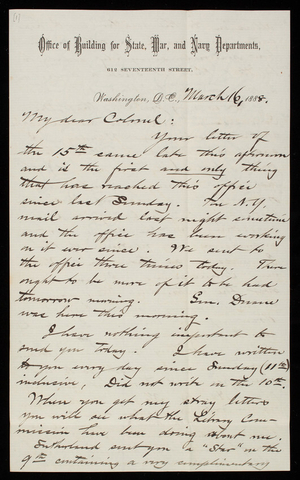 Office of Building for State, War, and Navy Departments,
612 SEVENTEENTH STREET,
Washington, D.C., March 16, 1888.
My dear Colonel:
Your letter of
the 15th came late this afternoon
and is the first and only thing
that has reached this office
since last Sunday. The N.Y.
mail arrived last night sometime
and the office has been working
on it ever since. We sent to
the office three times today. There
ought to be more of it to be had
tomorrow morning. Gen. Duane
was here this morning.
I have nothing important to
send you today. I have written
to you every day since Sunday (11th)
inclusive, Did not write on the 10th.
When you get my stray letters
you will see what the Library Com-
mission have been doing about me.
Sutherland sent you a "Star" on the
9th containing a very complimentary